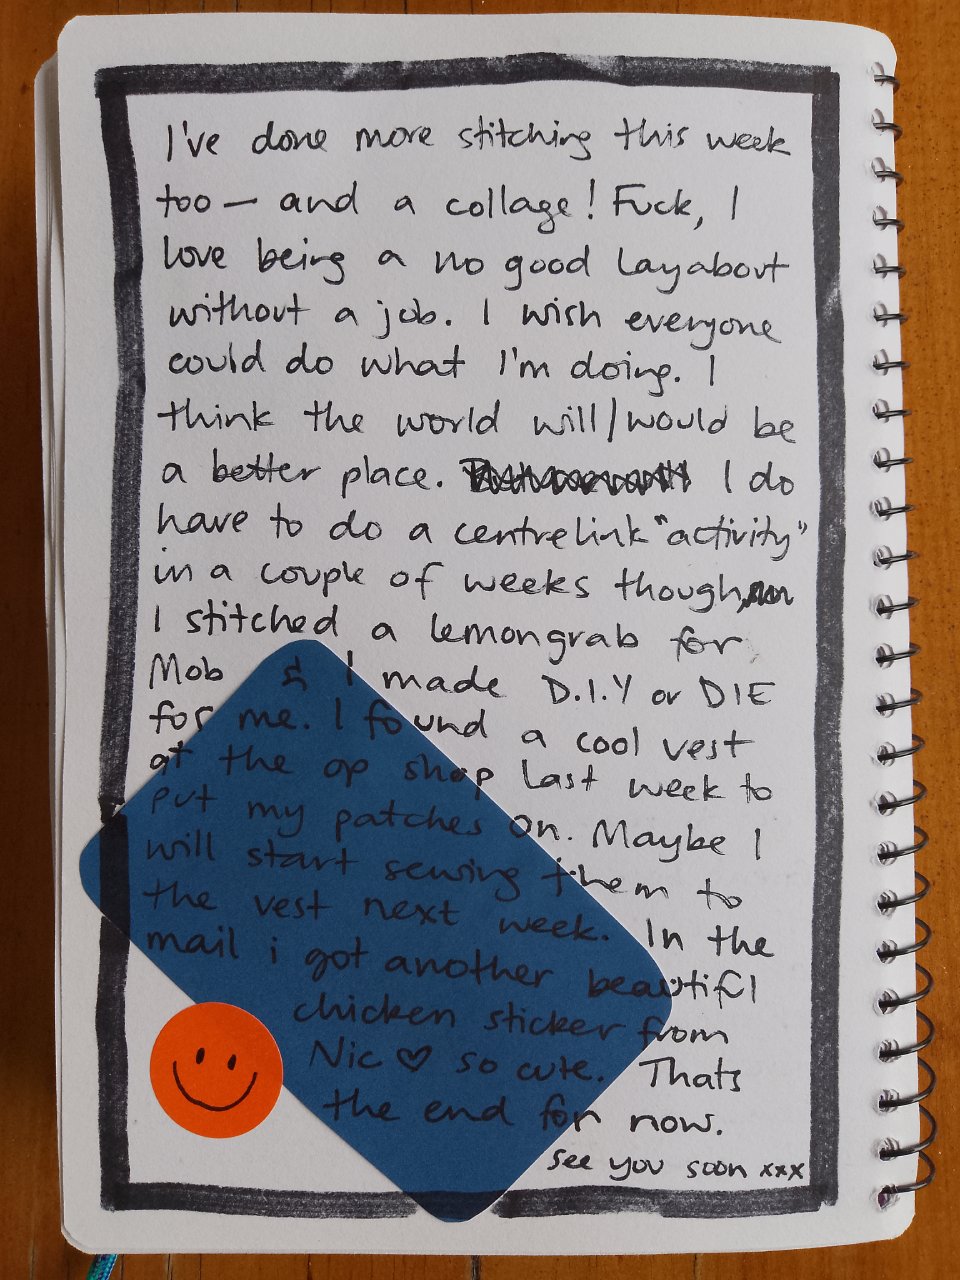 I've done more stitching this week
too – and a collage! Fuck, I
love being a no good layabout
without a job. I wish everyone
could do what I'm doing. I
think the world will/would be
a better place. I do
have to do a centrelink "activity"
in a couple of weeks though,
I stitched a lemongrab for
Mob & I made D.I.Y or DIE
for me. I found a cool vest
at the op shop last week to
put my patches on. Maybe I
will start sewing them to
the vest next week. In the
mail i got another beautifl
chicken sticker from
Nic ♡ so cute. Thats
the end for now.
see you soon xxx